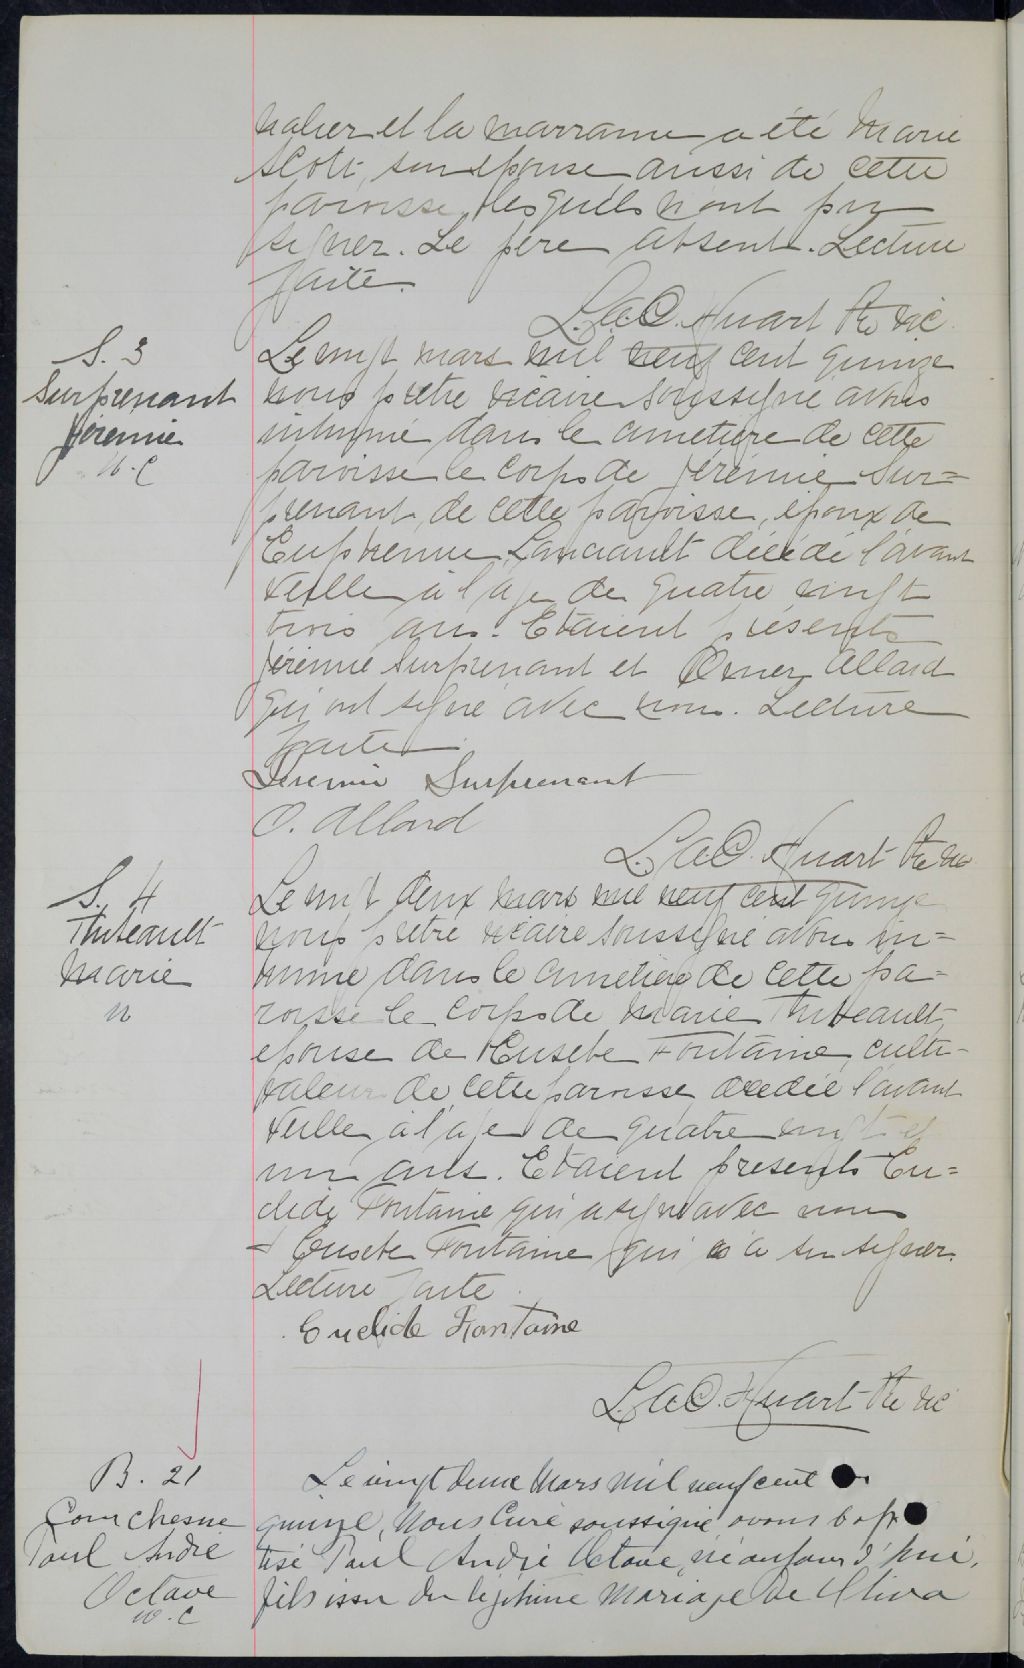 et la marraine a été Marie
Scott, son épouse aussi de cette
paroisse, lesquels n'ont pu
signer. Le père absent. Lecture
faite.
L.A.O. Huart Ptre vic.
S. 3
Surprenant
Jérémie
Le vingt mars mil neuf cent quinze
nous prêtre vicaire soussigné avons
inhumé dans le cimetière de cette
paroisse le corps de Jérémie Sur=
prenant, de cette paroisse, époux de
décédé l'avant
veille à l'age de quatre vingt
trois ans. Etaient présents
Jérémie Surprenant et Omer Allard
qui ont signé avec nous. Lecture
faite.
Jeremie Surprenant
O. Allard
L.A.O. Huart Ptre vic
S. 4
Thibeault
Marie
Le vingt deux mars mil neuf cent quinze
nous prêtre vicaire soussigné avons in=
humé dans le cimetière de cette pa=
roisse le corps de Marie Thibeault,
épouse de Eusèbe Fontaine, culti-
vateur de cette paroisse, décédée l'avant
veille à l'age de quatre vingt et
un ans. Etaient présents Eu=
clide Fontaine qui a signé avec nous
Eusèbe Fontaine qui n'a su signer.
Lecture faite.
Euclide Fontaine
L.A.O. Huart Ptre vic
B. 21
Courchesne
Paul André
Octave
Le vingt deux Mars mil neuf cent
quinze, Nous Curé soussigné avons bap
tisé Paul André Octave, né aujourd'hui,
fils issu du légitime Mariage de Oliva